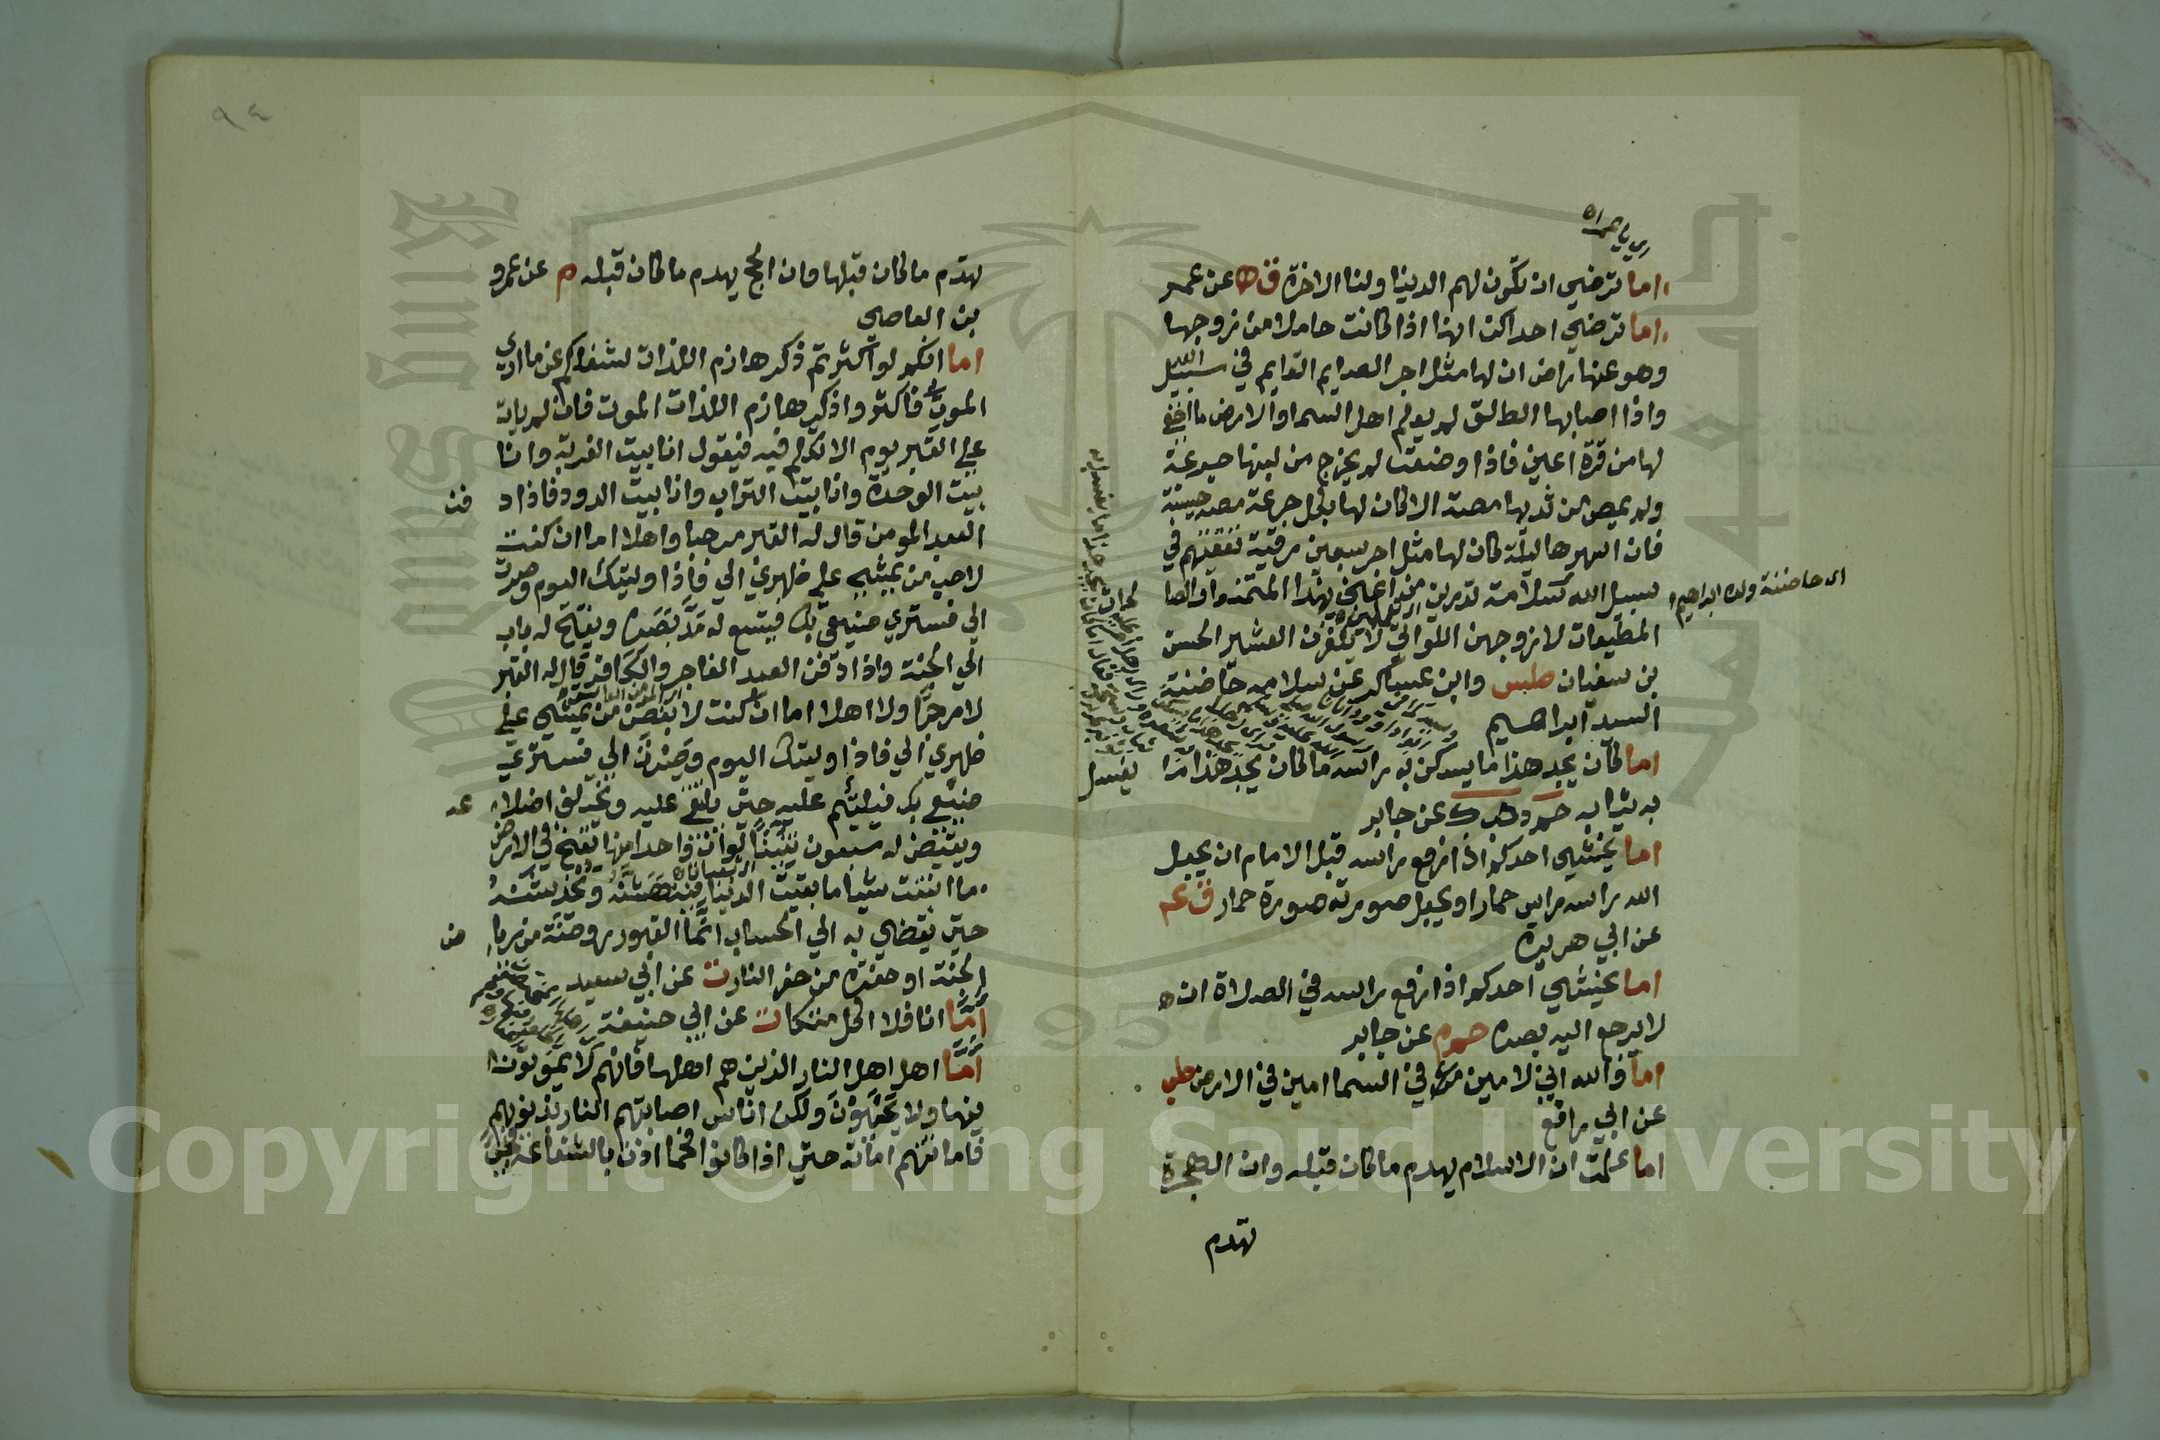 اي يا عمر اه
اما ترضي ان تكون لهم الدنيا ولنا الاخرة ق ه عن عمر
اما ترضي احداكن انها اذا كانت حاملا من زوجها
وهو عنها راض ان لها مثل اجر الصايم القايم في سبيل الله
واذا اصابها الطلق لم يعلم اهل السما والارض ما اخفي
لها من قرة اعين فاذا وضعت لم يخرج من لبنها جرعة
ولم يمص من ثديها مصة الا كان لها بكل جرعة مصة حسنة
فان اسهرها ليلة كان لها مثل اجر سبعين رقبة تعتقهم في
سبيل الله سلامة تدرين من اعني بهذا المتمنعات الصا
المطيعات لازوجهن اللواتي لا يكفرن العشير الحسن
اي حاضنة ولده ابراهيم
بن سفيان طس وابن عساكر عن سلامه حاضنة
السيد ابراهيم
اما كان يجد هذا ما يسكن به راسه ما كان يجد هذا ما يغسل
به ثيابه حم د حب ك عن جابر
اما يخشي احدكم اذا رفع راسه قبل الامام ان يجعل
الله راسه راس حمار او يجعل صورته صورة حمار ق عم
عن ابي هريرة
اما يخشي احدكم اذا رفع راسه في الصلاة ان
لا يرجع اليه بصره حم م عن جابر
اما والله اني لامين في السما امين في الارض طب
عن ابي رافع
اما علمت ان الاسلام يهدم ما كان قبله وان الهجرة
تهدم
٩٤
تهدم ما كان قبلها وان الحج يهدم ما كان قبله م عن عمرو
بن العاصي
اما انكم لو اكثرتم ذكر هاذم اللذات لشغلكم عن ما اري
الموت فاكثروا ذكر هاذم اللذات الموت فانه لم يات
علي القبر يوم الا تكلم فيه فيقول انا بيت الغربة وانا
بيت الوحدة وانا بيت التراب وانا بيت الدود فاذا د
فن
العبد المومن قال له القبر مرحبا واهلا اما ان كنت
لاحب من يمشي علي ظهري الي فاذا وليتك اليوم وصرت
الي فستري صنيعي بك فيتسع له مد بصره ويفتح له باب
الي الجنة واذا دفن العبد الفاجر والكافر قال له القبر
لا مرحبا ولا اهلا اما ان كنت لابغض من يمشي علي
ظهري الي فاذا وليتك اليوم وصرت الي فستري
صنيعي بك فيلتئم عليه حتي يلتقي عليه وتختلف اضلا
عه
ويقيض له سبعون تنينا لو ان واحدا منها نفخ في الارض
ما انبتت شيا ما بقيت الدنيا فينهشنه ويخدشنه
حتي يفضي به الي الحساب انما القبور روضة من ريا
ض
الجنة او حفرة من حفر النار ت عن ابي سعيد
اما انا فلا اكل متكا ت عن ابي جحيفة
اما اهل اهل النار الذين هم اهلها فانهم لا يموتون
فيها ولا يحيون ولكن اناس اصابتهم النار بذنوبهم
فاماتتهم اماتة حتي اذا كانوا فحما اذن بالشفاعة فجي
Copyright © King Saud University
King Saud University
1957